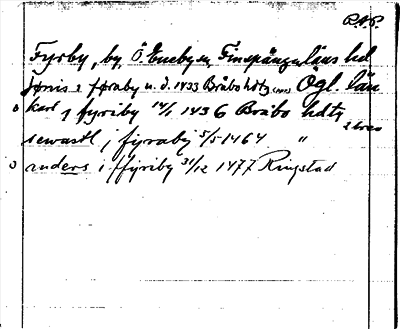 R.A.P.
Fyrby, by, Ö. Eneby sn, Finspångaläns hd
jønis i føraby u. d. 1433 Bråbo hdtg (vas) Ögl. län
karl i fyriby 14/1 1436 Bråbo hdtg
sewastl i fyraby 5/5 1464 "
anders i ffyriby 31/12 1477 Ringstad